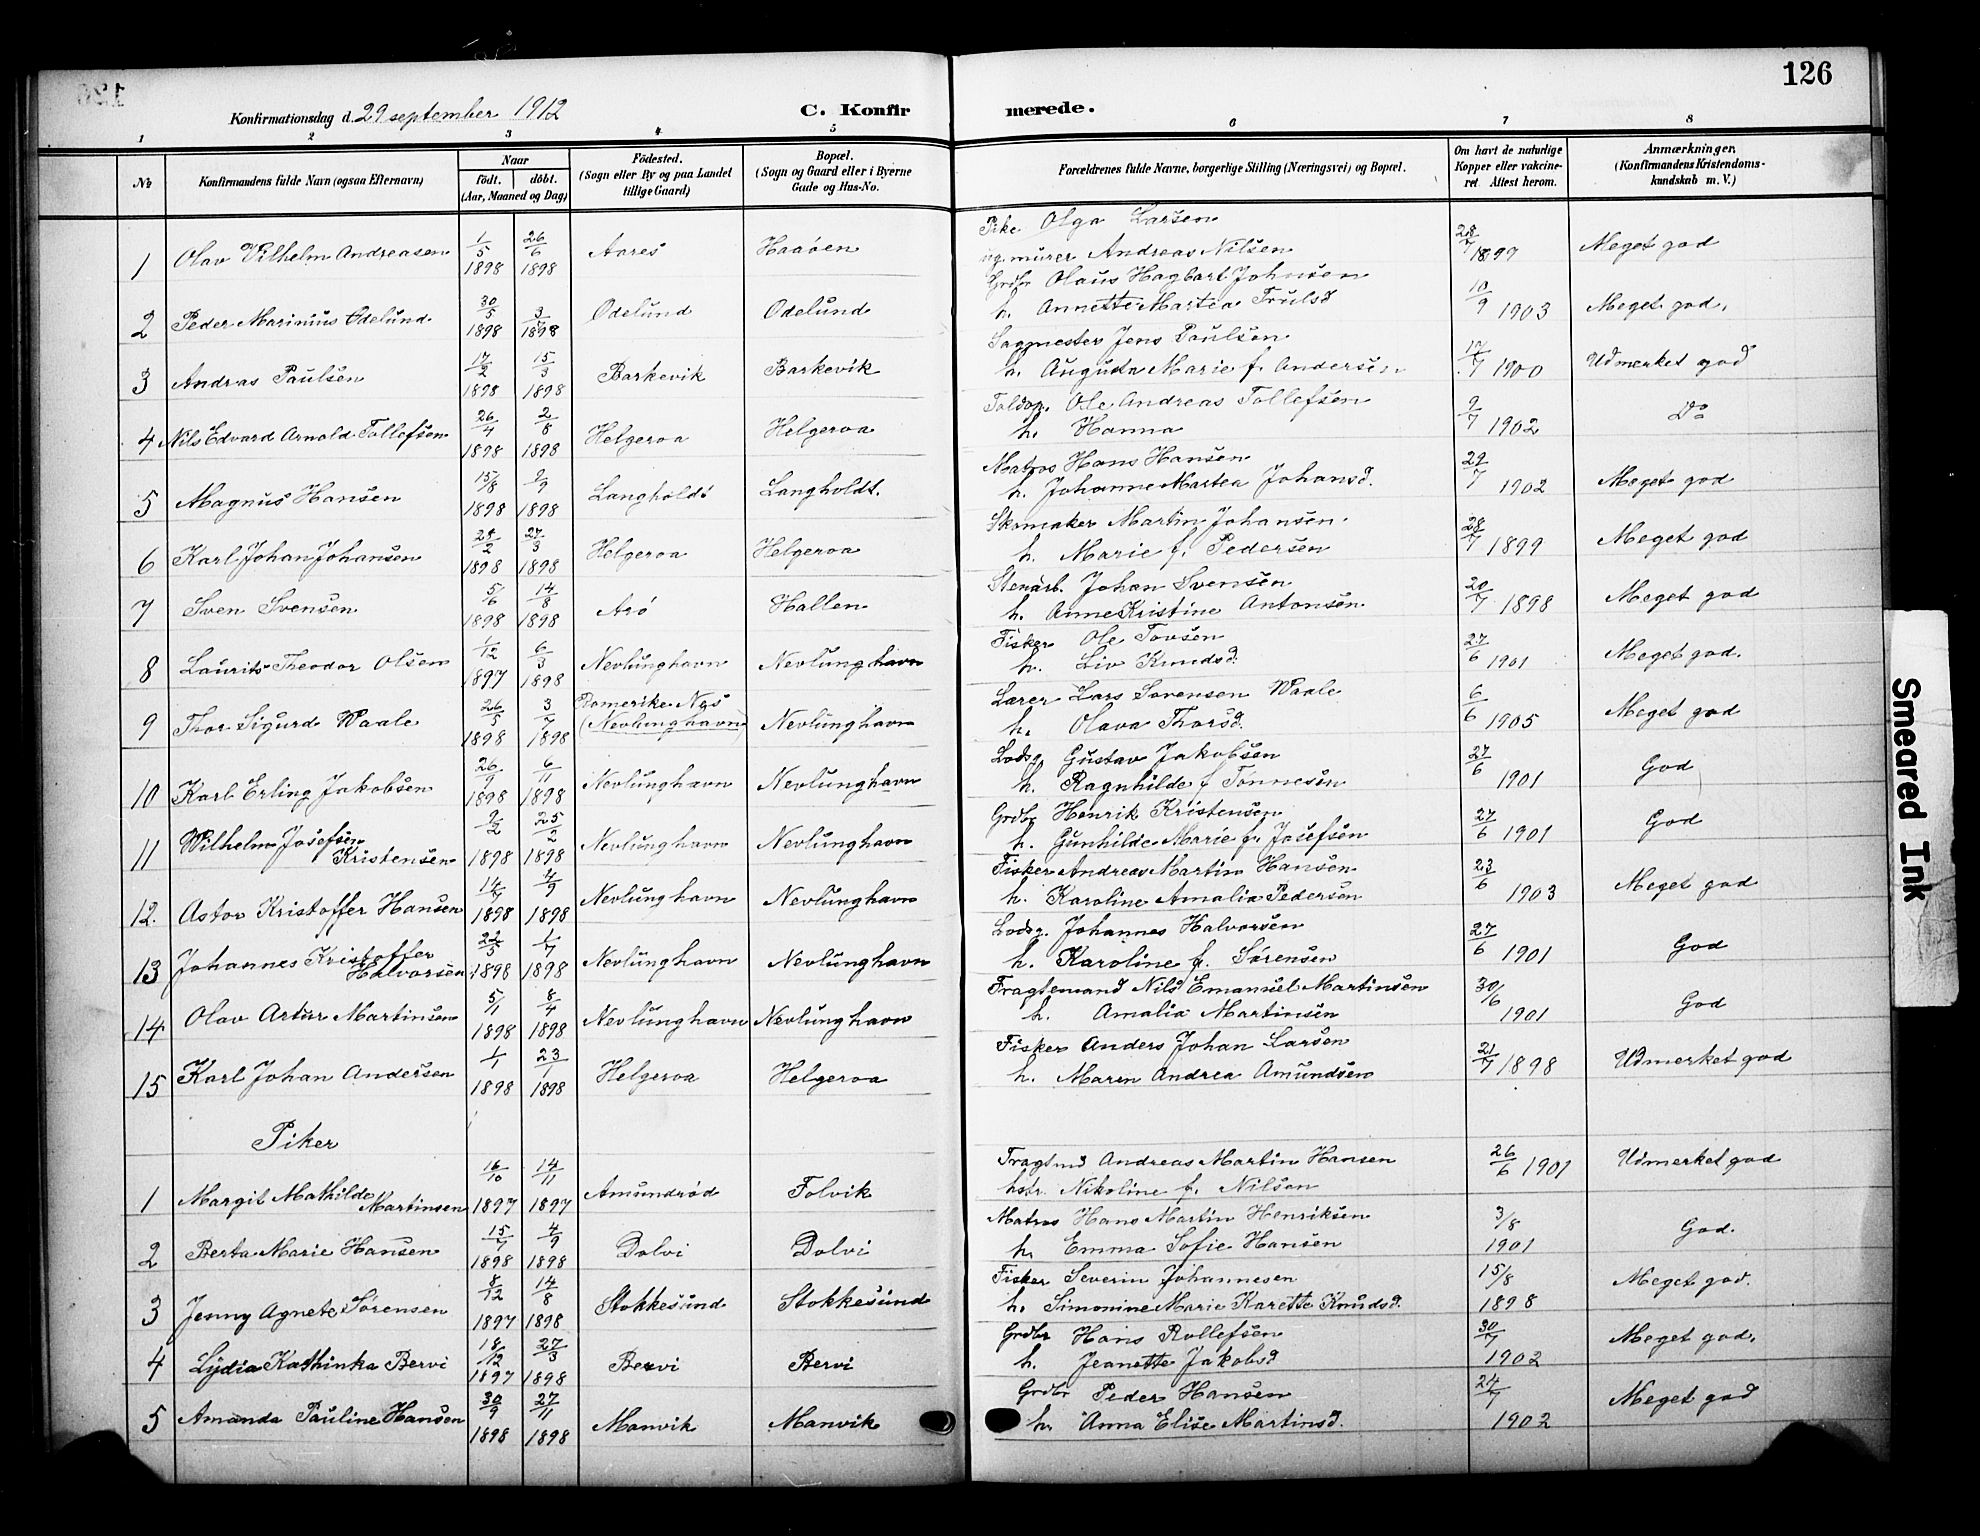 126
Konfirmationsdag d. 29 september 1912
C. Konfirmerede.
1 2 3 4 5 6 7 8
No.
Konfirmandens fulde Navn (ogsaa Efternavn)
Naar
födt. döbt.
(Aar, Maaned og Dag)
Födested.
(Sogn eller By og paa Landet tillige Gaard)
Bopæl.
(Sogn og Gaard eller i Byerne Gade og Hus-No.
Forældrenes fulde Navne, borgerlige Stilling (Næringsvei) og Bopæl.
Om havt de naturlige Kopper eller vakcineret Attest herom.
Anmærkninger.
(Konfirmandens Kristendomskundskab m. V.)
1 Olav Vilhelm Andreasen 1/5 1898 26/6 1898 Aares Haaöen Pike Olga Larsen 28/7 1899 Meget god
ug. murer Andreas Nilsen
2 Peder Marinius Odelund 30/5 1898 3/ 1898 Odelund Odelund Grdbr Olaus Hagbart Johnsen 10/9 1903 Meget god.
h. Annette Martea Trulsd
3 Andras Paulsen 17/2 1898 15/3 1898 Barkevik Barkevik Sagmester Jens Paulsen 17/7 1900 Udmerket god
h. Augusta Marie f. Andersen
4 Nils Edvard Arnold Tollefsen 26/4 1898 2/8 1898 Helgeroa Helgeroa Toldop. Ole Andreas Tollefsen 9/7 1902 Do
h. Hanna
5 Magnus Hansen 15/8 1898 2/9 1898 Langholdt Langholdt. Matros Hans Hansen 29/7 1902 Meget god
h. Johanne Martea Johansd.
6 Karl Johan Johansen 2/2 1898 27/3 1898 Helgeroa Helgeroa Skomaker Martin Johansen. 28/7 1899 Meget god
h. Marie f. Pedersen
7 Sven Svensen 5/6 1898 14/8 1898 Arö Hallen Stenarb. Johan Svensen 20/7 1898 Meget god
h. Anne Kristine Antonsen.
8 Laurits Theodor Olsen 1/12 1897 6/3 1898 Nevlunghavn Nevlunghavn Fisker Ole Tovsen 27/6 1901 Meget god.
h. Liv Knudsd.
9 Thor Sigurd Waale 26/5 1898 3/7 1898 Romerike Nes (Nevlunghavn) Nevlunghavn Lærer Lars Sorensen Waale 6/6 1905 Meget god
h. Olava Thorsd.
10 Karl Erling Jakobsen 26/9 1898 6/11 1898 Nevlunghavn Nevlunghavn Lodsg. Gustav Jakobsen 27/6 1901 God
h. Ragnhilde f Tonnesen
11 Wilhelm Josefsen Kristensen 9/2 1898 25/2 1898 Nevlunghavn Nevlunghavn Grdbr Henrik Kristensen 27/6 1901 God
h. Gunhilde Marie f. Josefsen
12. Astor Kristoffer Hansen 14/7 1898 4/9 1898 Nevlunghavn Nevlunghavn Fisker Andreas Martin Hansen 23/6 1903 Meget god
h. Karoline Amalia Pedersen
13 Johannes Kristoffer Halvorsen 22/5 1898 1/7 1898 Nevlunghavn Nevlunghavn Lodsg. Johannes Halvorsen 27/6 1901 God
h. Karoline f. Sørensen
14 Olav Artur Martinsen 5/1 1898 8/4 1898 Nevlunghavn Nevlunghavn Fragtemand Nils Emanuel Martinsen 30/6 1901 God
h. Amalia Martinsen
15 Karl Johan Andersen 1/1 1898 23/1 1898 Helgeroa Helgeroa Fisker Anders Johan Larsen 21/7 1898 Udmerket god
h. Maren Andrea Amundsen
Piker
1 Margit Mathilde Martinsen 16/10 1897 14/11 1897 Amundrød Folvik Fragtmd Andreas Martin Hansen 26/6 1901 Udmerket god
hstr. Nikoline f. Nilsen
2 Berta Marie Hansen 15/7 1898 4/9 1898 Dolvi Dolvi Matros Hans Martin Henriksen 3/8 1901 God.
h. Emma Sofie Hansen
3 Jenny Agnete Sørensen 8/12 1897 14/8 1898 Stokkesund Stokkesund Fisker Severin Johannesen 15/8 1898 Meget god.
h. Simonine Marie Karette Knudsd.
4 Lydia Kathinka Bervi 18/12 1897 27/3 1898 Bervi Bervi Grdbr Hans Rollefsen 30/7 1902 Meget god.
h. Jeanette Jakobsd
5 Amanda Pauline Hansen 30/9 1898 27/11 1898 Manvik Manvik Grdbr Peder Hansen 24/7 1902 Meget god
h. Anna Elise Martinsd.
Smeared Ink